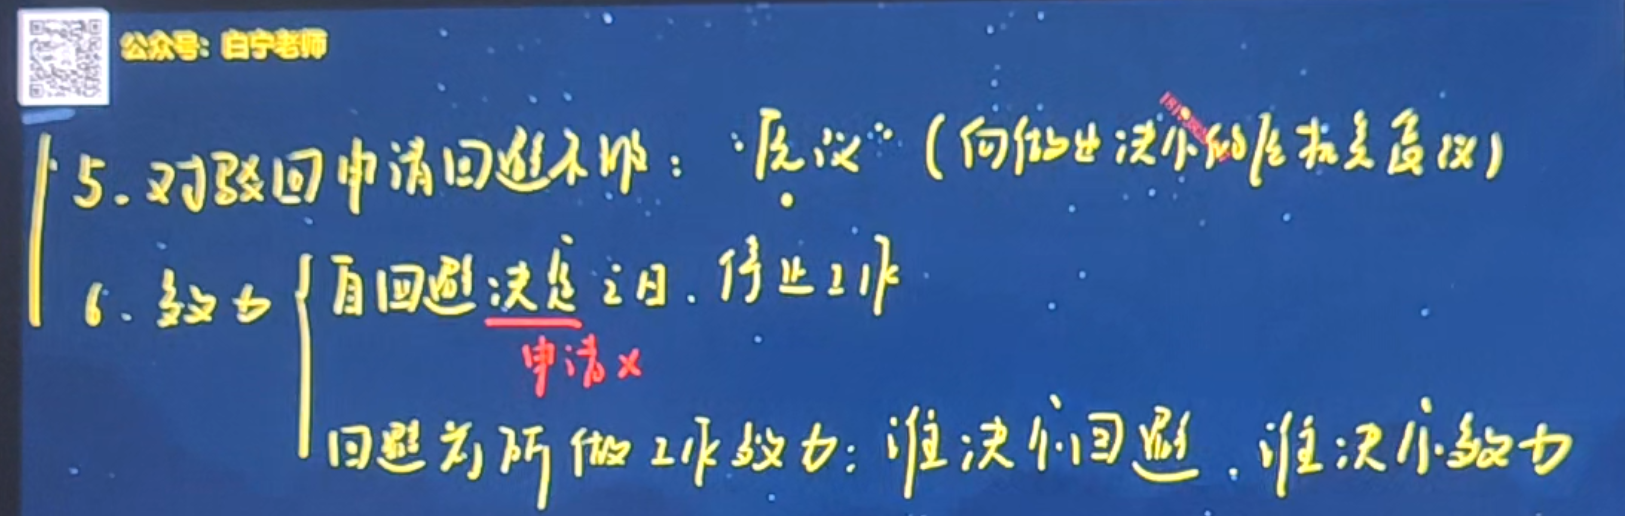 公众号：白宁老师
5.对驳回申请回避不服："复议"（向做出决定的原机关复议）
6.效力
自回避决定之日.停止工作
申请x
回避前所做工作效力：谁决定回避.谁决定效力